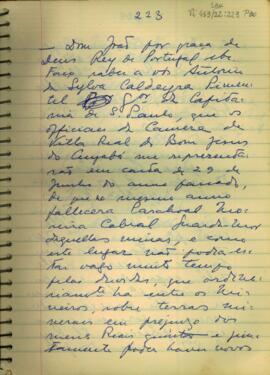 223
— Dom João por graça de
Deus Rey de Portugal etc
Faço saber a vós Antonio
da Sylva Caldeyra Pimen-
tel Gor. da Capita-
nia de S. Paulo, que os
officiaes da Camera da
Villa Real do Bom Jesus
do Cuyabá me representa-
rão em carta de 29 de
Junho do anno passado,
de que no mesmo anno
fallecera
Cabral Guarda Mor
daquellas minas, e como
este lugar não podia es-
tar vago muito tempo
pelas duvidas, que ordina-
riamente ha entre os Mi-
neiros, sobre terras mi-
neraes em prejuizo dos
meus Reais quintos e jun-
tamente poder haver novos